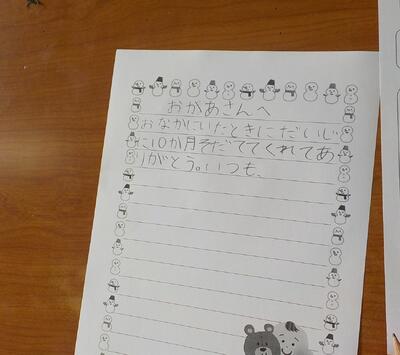 おかあさんへ
おなかにいたときにだいじ
に10か月そだててくれてあ
りがとう。いつも、